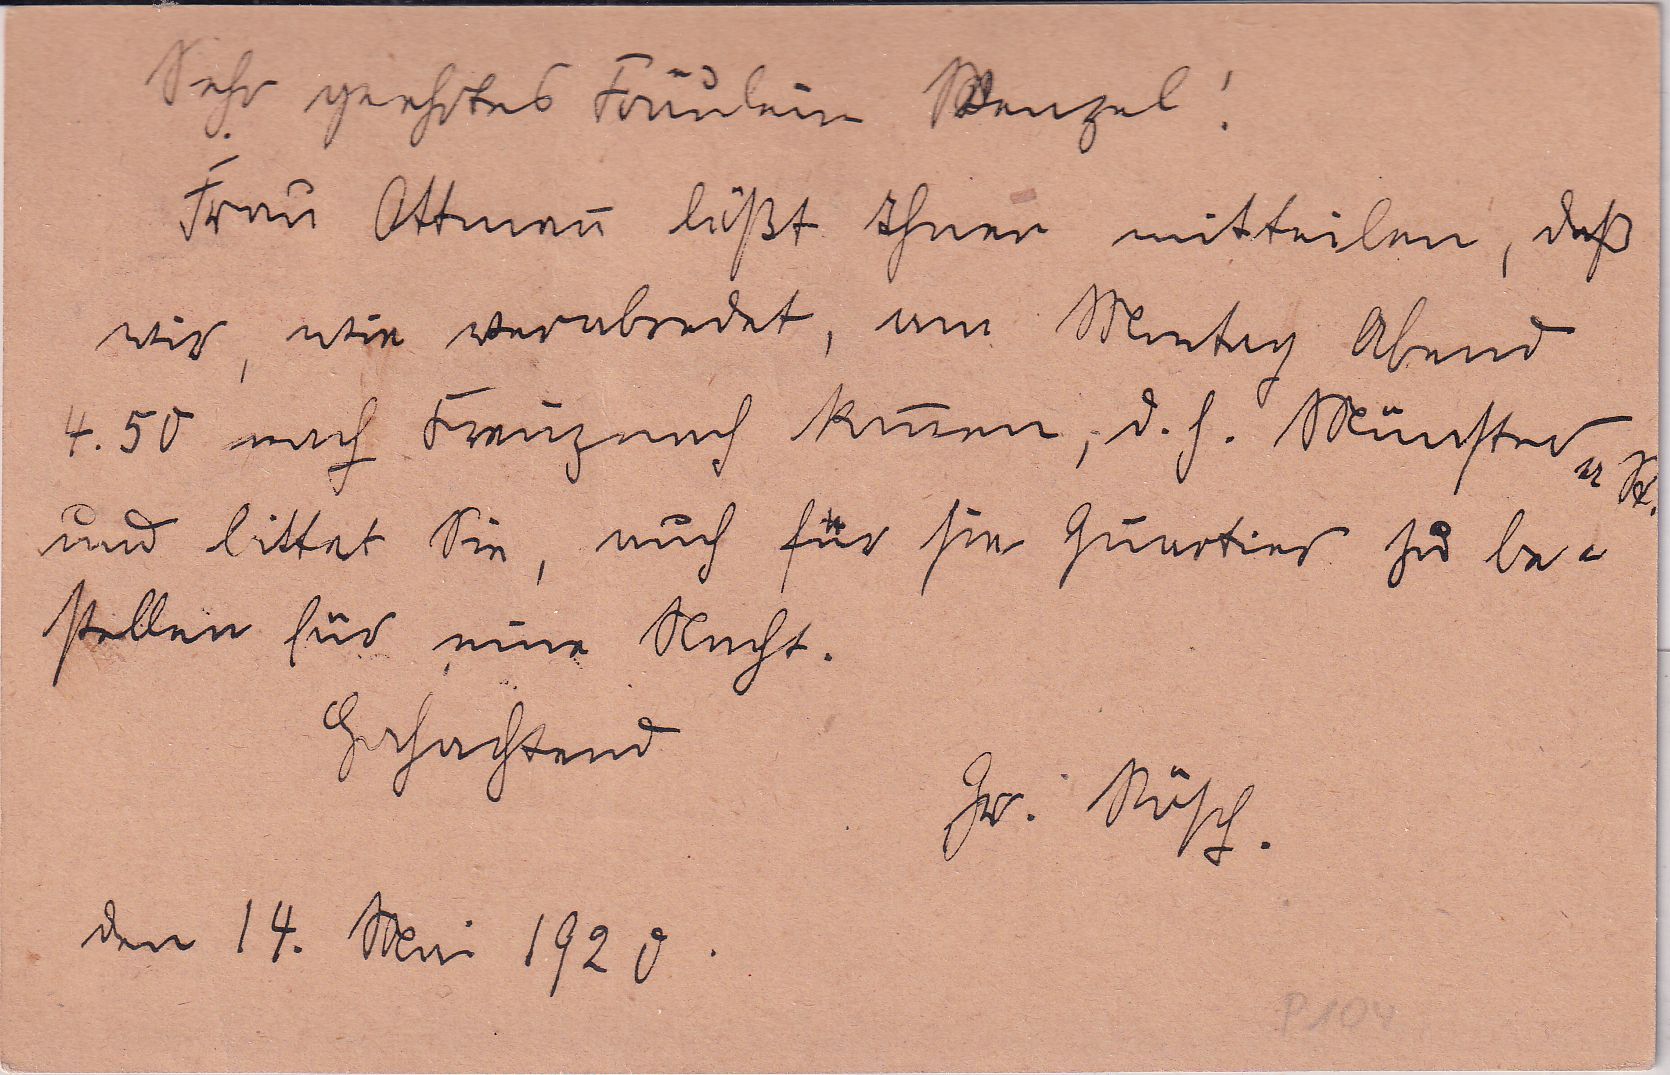 Sehr geehrtes Fräulein Wenzel!
Frau Ottmann läßt Ihnen mitteilen, daß
wir, wie verabredet, am Montag Abend
4.50 nach Kreuznach kommen, d. h. Münster
a. St.
und bittet Sie, auch für sie Quartier zu be-
stellen für eine Nacht.
Hochachtend
Gr. Rösch.
den 14. Mai 1920.
P 104